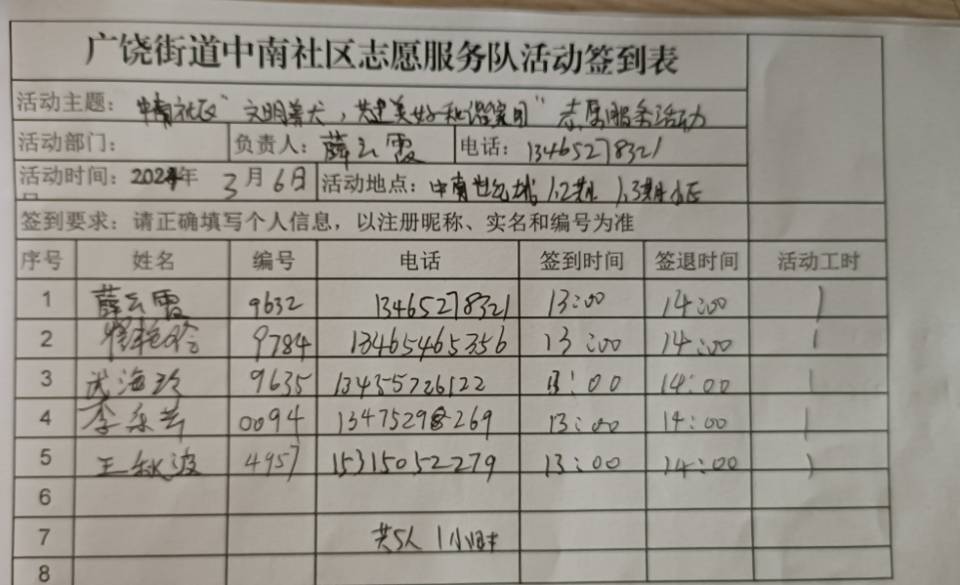 广饶街道中南社区志愿服务队活动签到表
活动主题：中南社区"文明养犬，共建美好和谐家园"志愿服务活动
活动部门： 负责人：薛云霞 电话：13465278321
活动时间：2024年3月6日 活动地点：中南世纪城1.2期 1.3期小区
签到要求：请正确填写个人信息，以注册昵称、实名和编号为准
序号 姓名 编号 电话 签到时间 签退时间 活动工时
1 薛云霞 9632 13465278321 13:00 14:00 1
2 9784 13465465356 13:00 14:00 1
3 武海玲 9635 13455726122 13:00 14:00 1
4 李乐芸 0094 13475298269 13:00 14:00 1
5 王秋波 4957 15315052279 13:00 14:00 1
6
7 共5人 1小时
8